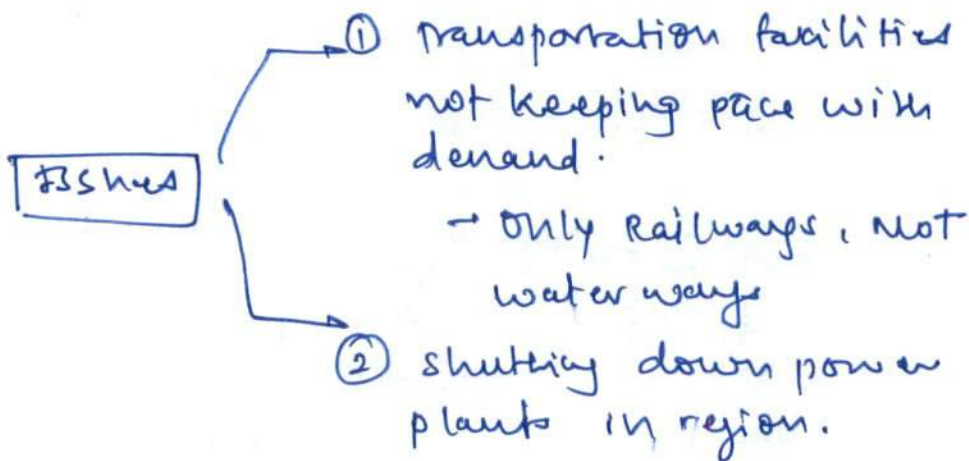 Issues
① Transportation facilities
not keeping pace with
demand.
- Only Railways, Not
waterways
② shutting down power
plants in region.